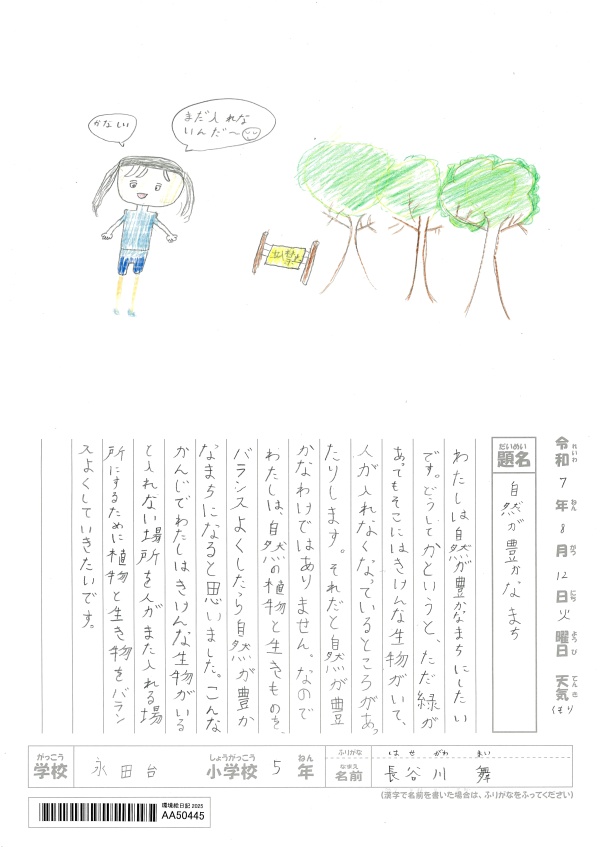 かなしい
まだ入れな
いんだ〜
立入禁止
令和7年8月12日火曜日 天気くもり
れいわ ねん がつ にち ようび てんき
だいめい
題名
自然が豊かなまち
わたしは自然が豊かなまちにしたい
です。どうしてかというと、ただ緑が
あってもそこにはきけんな生物がいて、
人が入れなくなっているところがあっ
たりします。それだと自然が豊
かなわけではありません。なので
わたしは、自然の植物と生きものを、
バランスよくしたら自然が豊か
なまちになると思いました。こんな
かんじでわたしはきけんな生物がいる
と入れない場所を人がまた入れる場
所にするために植物と生き物をバラン
スよくしていきたいです。
がっこう しょうがっこう ねん
学校 永田台 小学校 5年
ふりがな はせがわ まい
なまえ
名前 長谷川 舞
(漢字で名前を書いた場合は、ふりがなをふってください)
環境絵日記2025
AA50445